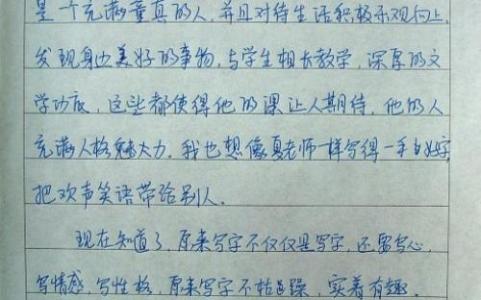 是一个充满童真的人,并且对待生活积极乐观向上,
发现身边美好的事物,与学生相长教学,深厚的文
学功底,这些都使得他的课让人期待,他的人
充满人格魅大力,我也想像夏老师一样写得一手的好字
把欢声笑语带给别人。
现在知道了,原来写字不仅仅是写字,还需写心,
写情感,写性格,原来写字不枯燥,实着有趣。